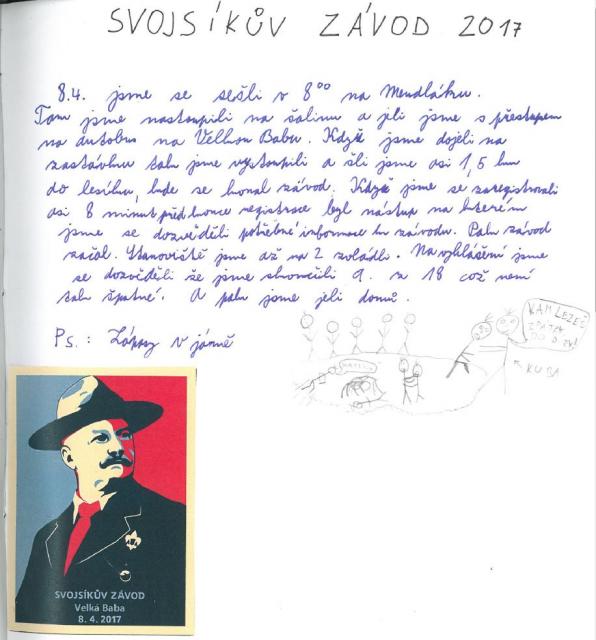 SVOJSÍKŮV ZÁVOD 2017
8.4. jsme se sešli v 8⁰⁰ na Mendláku.
Tam jsme nastoupili na šalinu a jeli jsme s přestupem
na autobus na Velkou Babu. Když jsme dojeli na
zastávku tak jsme vystoupili a šli jsme asi 1,5 km
do lesíku, kde se konal závod. Když jsme se zaregistrovali
asi 8 minut před konce registrace byl nástup na kterém
jsme se dozvěděli potřebné informace k závodu. Pak závod
začal. Stanoviště jsme až na 2 zvládli. Na vyhlášení jsme
se dozvěděli že jsme skončili 9. z 18 což není
tak špatné. A pak jsme jeli domů.
Ps.: Zápasy v jámě
KAM LEZEŠ
ZPÁTKY
DO
KUBA
SVOJSÍKŮV ZÁVOD
Velká Baba
8. 4. 2017